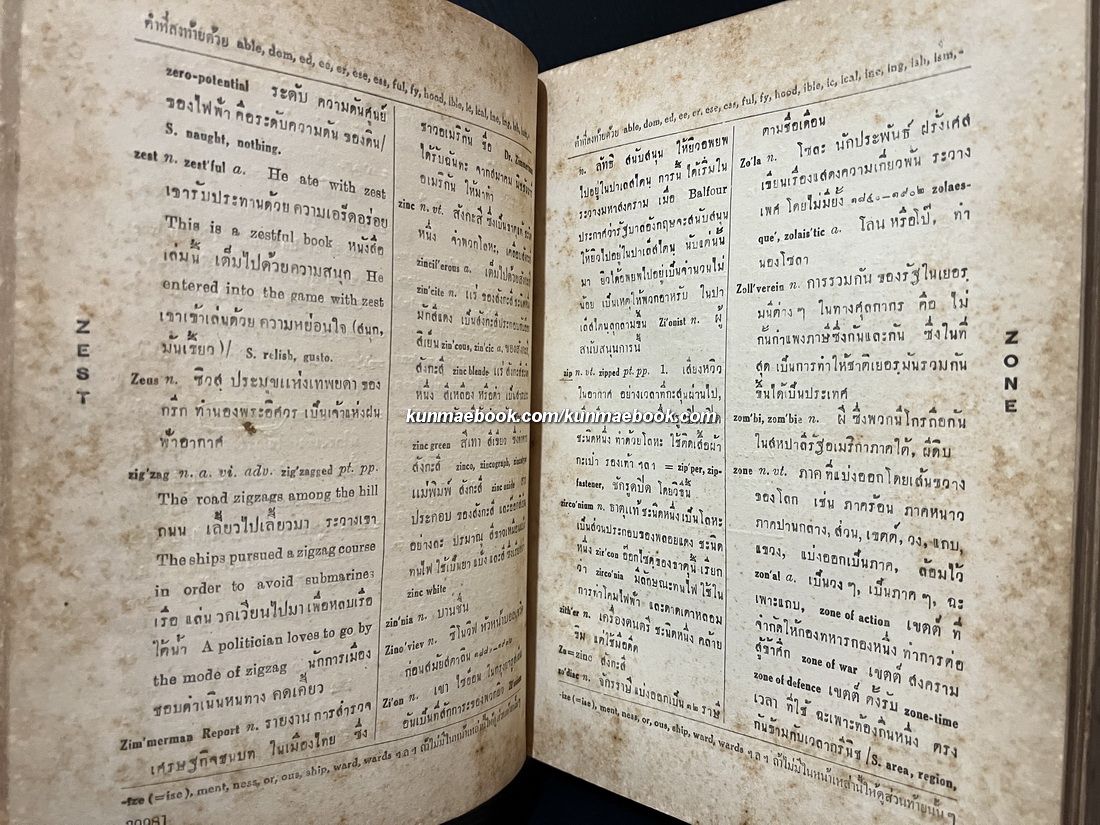 คำที่ลงท้ายด้วย able, dom, ed, ee, er, ese, ess, ful, fy, hood, ible, ic, ical, ine, ing, ish, ism,-
zero-potential ระดับ ความดันศูนย์
ของไฟฟ้า คือระดับความดัน ของดิน/
S. naught, nothing.
zest n. zest'ful a. He ate with zest
เขารับประทานด้วย ความเอร็ดอร่อย
This is a zestful book หนังสือ
เล่มนี้ เต็มไปด้วยความสนุก He
entered into the game with zest
เขาเข้าเล่นด้วย ความหย่อนใจ (สนุก,
มันเขี้ยว)/ S. relish, gusto.
Zeus n. ซิวส์ ประมุขแห่งเทพยดา ของ
กรีก ทำนองพระอิศวร เป็นเจ้าแห่งฝน
ฟ้าอากาศ
zig'zag n. a. vi. adv. zig'zagged pt. pp.
The road zigzags among the hill
ถนน เลี้ยวไปเลี้ยวมา ระวางเขา
The ships pursued a zigzag course
in order to avoid submarines
เรือ แล่น วกเวียนไปมา เพื่อหลบเรือ
ใต้น้ำ A politician loves to go by
the mode of zigzag นักการเมือง
ชอบดำเนินหนทาง คดเคี้ยว
Zim'merman Report n. รายงาน การสำรวจ
เศรษฐกิจชนบท ในเมืองไทย ซึ่ง
ชาวอเมริกัน ชื่อ Dr.
ได้รับฉันทะ จากสมาคม
อเมริกัน ให้มาทำ
zinc n. vt. สังกะสี ซึ่งเป็นธาตุแท้
หนึ่ง จำพวกโลหะ,
zincif'erous a. เต็มไปด้วยสังกะสี
zin'cite n. แร่ ของสังกะสี
มักสีแดง เป็นสังกะสีประกอบกับ
zin'cous, zin'cic a. ของสังกะสี
สังกะสี zinc blende แร่ สังกะสี
หนึ่ง สีเหลือง หรือดำ
zinc green สีเทา สีเขียว
สังกะสี zinco, zincograph,
แม่พิมพ์ สังกะสี zinc oxide
ประกอบ ของสังกะสี และอ๊อกซิเจน
อย่างละ ปรมาณู
ทนไฟ ใช้เป็นยา แป้ง และสี
zinc white
zin'nia n. บานชื่น
Zino'viev n. ซิโนวิฟ หัวหน้าบอลเชวิค
ก่อนสมัยสตาลิน
Zi'on n. เขา ไซออน ในกรุงยารูซาเล็ม
อันเป็นที่สักการะของพวกยิว
-ize (=ise), ment, ness, or, ous, ship, ward, wards ฯลฯ ถ้าไม่มีในหน้าเหล่านี้
ZEST
คำที่ลงท้ายด้วย able, dom, ed, ee, er, ese, ess, ful, fy, hood, ible, ic, ical, ine, ing, ish, ism,-
n. ลัทธิ สนับสนุน ให้ยิวอพยพ
ไปอยู่ในปาเลสไตน์ การนี้ ได้เริ่มใน
ระวางมหาสงคราม เมื่อ Balfour
ประกาศว่ารัฐบาลอังกฤษจะสนับสนุน
ให้ยิวไปอยู่ในปาเล็สไตน์ นับแต่นั้น
มา ยิวได้อพยพไปอยู่เป็นจำนวนไม่
น้อย เป็นเหตุให้พวกอาหรับ ในปา
เล็สไตน์ลุกลามขึ้น Zi'onist n. ผู้
สนับสนุนการนี้
zip n. vt. zipped pt. pp. 1. เสียงหวิว
ในอากาศ อย่างเวลาที่กระสุนผ่านไป,
ชะนิดหนึ่ง ทำด้วยโลหะ ใช้ติดเสื้อผ้า
กะเป๋า รองเท้า ฯลฯ = zip'per, zip-
fastener, ชักรูดปิด โดยวิธีนี้
zirco'nium n. ธาตุแท้ ชะนิดหนึ่ง เป็นโลหะ
เป็นส่วนประกอบของพลอยแดง ชะนิด
หนึ่ง zir'con อ๊อกไซด์ของธาตุนี้ เรียก
ว่า zirco'nia มีลักษณะทนไฟ ใช้ใน
การทำโคมไฟฟ้า และดาดเตาหลอม
zith'er n. เครื่องดนตรี ชะนิดหนึ่ง คล้าย
ขิม แต่ใช้มือดีด
Zn=zinc สังกะสี
zo'diac n. จักรราษี แบ่งออกเป็น ๑๒ ราษี
ตามชื่อเดือน
Zo'la n. โซละ นักประพันธ์ ฝรั่งเศส
เขียนเรื่องแสดงความเกี่ยวพัน ระวาง
เพศ โดยไม่มียั้ง ๑๘๔๐-๑๙๐๒ zolaes-
que', zolais'tic a. โลน หรือโป๊, ทำ
นองโซลา
Zoll'verein n. การรวมกัน ของรัฐในเยอร
มันต่าง ๆ ในทางศุลกากร คือ ไม่
กั้นกำแพงภาษีซึ่งกันและกัน ซึ่งในที่
สุด เป็นการทำให้ชาติเยอรมันรวมกัน
ขึ้นได้เป็นประเทศ
zom'bi, zom'bie n. ผี ซึ่งพวกนีโกรถือกัน
ในสหปาลีรัฐอเมริกาภาคใต้, ผีดิบ
zone n. vt. ภาค ที่แบ่งออกโดยเส้นขวาง
ของโลก เช่น ภาคร้อน ภาคหนาว
ภาคปานกลาง, ส่วน, เขตต์, วง, แถบ,
แขวง, แบ่งออกเป็นภาค, ล้อมไว้
zon'al a. เป็นวง ๆ, เป็นภาค ๆ, ฉะ
เพาะแถบ, zone of action เขตต์ ที่
จำกัดให้กองทหารกองหนึ่ง ทำการต่อ
สู้ข้าศึก zone of war เขตต์ สงคราม
zone of defence เขตต์ ตั้งรับ zone-time
เวลา ที่ใช้ ฉะเพาะท้องถิ่นหนึ่ง ตรง
กันข้ามกับเวลากรีนิช /S. area, region,
-ize (=ise), ment, ness, or, ous, ship, ward, wards ฯลฯ ถ้าไม่มีในหน้าเหล่านี้ให้ดูส่วนท้ายนั้น ๆ
ZONE
kunmaebook.com/kunmaebook.com